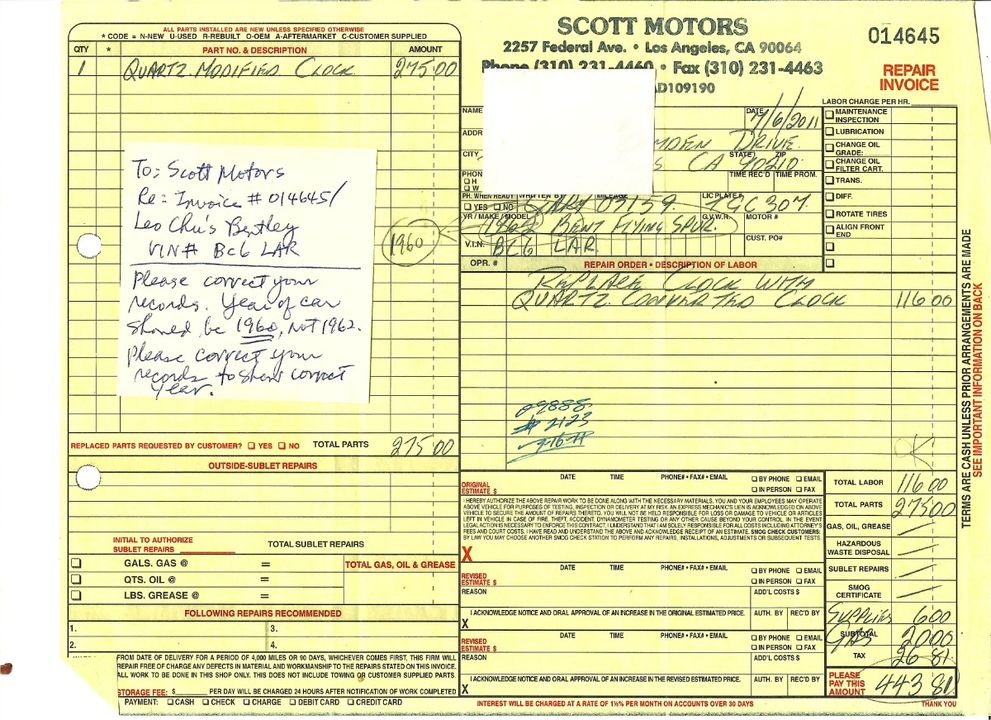 ALL PARTS INSTALLED ARE NEW UNLESS SPECIFIED OTHERWISE
* CODE = N-NEW U-USED R-REBUILT O-OEM A-AFTERMARKET C-CUSTOMER SUPPLIED
QTY * PART NO. & DESCRIPTION AMOUNT
1 QUARTZ MODIFIED CLOCK 275 00
To: Scott Motors
Re: Invoice # 014645/
Leo Chu's Bentley
VIN# BC6 LAR
Please correct your
records. Year of car
should be 1960, NOT 1962.
Please correct your
records to show correct
year.
REPLACED PARTS REQUESTED BY CUSTOMER? YES NO TOTAL PARTS 275 00
OUTSIDE-SUBLET REPAIRS
INITIAL TO AUTHORIZE
SUBLET REPAIRS
TOTAL SUBLET REPAIRS
GALS. GAS @ = TOTAL GAS, OIL & GREASE
QTS. OIL @ =
LBS. GREASE @ =
FOLLOWING REPAIRS RECOMMENDED
1. 3.
2. 4.
FROM DATE OF DELIVERY FOR A PERIOD OF 4,000 MILES OR 90 DAYS, WHICHEVER COMES FIRST, THIS FIRM WILL
REPAIR FREE OF CHARGE ANY DEFECTS IN MATERIAL AND WORKMANSHIP TO THE REPAIRS STATED ON THIS INVOICE.
ALL WORK TO BE DONE IN THIS SHOP ONLY. THIS DOES NOT INCLUDE TOWING OR CUSTOMER SUPPLIED PARTS.
STORAGE FEE: $ PER DAY WILL BE CHARGED 24 HOURS AFTER NOTIFICATION OF WORK COMPLETED
PAYMENT: CASH CHECK CHARGE DEBIT CARD CREDIT CARD
SCOTT MOTORS
2257 Federal Ave. • Los Angeles, CA 90064
Phone (310) 231-4460 • Fax (310) 231-4463
AD109190
014645
REPAIR
INVOICE
LABOR CHARGE PER HR.
NAME DATE 7/6/2011
ADDR MDEN DRIVE
CITY S STATE CA ZIP 90210
PHON TIME REC'D TIME PROM.
H
W
PH. WHEN READY WRITTEN BY MILEAGE LIC PLATE #
YES NO GARY 07159 1GC 307
YR / MAKE / MODEL G.V.W.R. MOTOR #
1960 1962 BENT FLYING SPUR.
V.I.N. BC6 LAR CUST. PO#
MAINTENANCE INSPECTION
LUBRICATION
CHANGE OIL GRADE:
CHANGE OIL FILTER CART.
TRANS.
DIFF.
ROTATE TIRES
ALIGN FRONT END
OPR. # REPAIR ORDER • DESCRIPTION OF LABOR
REPLACE CLOCK WITH
QUARTZ CONVERTED CLOCK 116 00
09888
# 2123
7-16-11
OK
ORIGINAL ESTIMATE $ DATE TIME PHONE# • FAX# • EMAIL BY PHONE EMAIL
IN PERSON FAX
I HEREBY AUTHORIZE THE ABOVE REPAIR WORK TO BE DONE ALONG WITH THE NECESSARY MATERIALS. YOU AND YOUR EMPLOYEES MAY OPERATE
ABOVE VEHICLE FOR PURPOSES OF TESTING, INSPECTION OR DELIVERY AT MY RISK. AN EXPRESS MECHANICS LIEN IS ACKNOWLEDGED ON ABOVE
VEHICLE TO SECURE THE AMOUNT OF REPAIRS THERETO. YOU WILL NOT BE HELD RESPONSIBLE FOR LOSS OR DAMAGE TO VEHICLE OR ARTICLES
LEFT IN VEHICLE IN CASE OF FIRE, THEFT, ACCIDENT, DYNAMOMETER TESTING OR ANY OTHER CAUSE BEYOND YOUR CONTROL.
X
REVISED ESTIMATE $ DATE TIME PHONE# • FAX# • EMAIL BY PHONE EMAIL
IN PERSON FAX
REASON ADD'L COSTS $
I ACKNOWLEDGE NOTICE AND ORAL APPROVAL OF AN INCREASE IN THE ORIGINAL ESTIMATED PRICE. AUTH. BY REC'D BY
X
REVISED ESTIMATE $ DATE TIME PHONE# • FAX# • EMAIL BY PHONE EMAIL
IN PERSON FAX
REASON ADD'L COSTS $
I ACKNOWLEDGE NOTICE AND ORAL APPROVAL OF AN INCREASE IN THE REVISED ESTIMATED PRICE. AUTH. BY REC'D BY
X
INTEREST WILL BE CHARGED AT A RATE OF 1½% PER MONTH ON ACCOUNTS OVER 30 DAYS
TOTAL LABOR 116 00
TOTAL PARTS 275 00
GAS, OIL, GREASE
HAZARDOUS WASTE DISPOSAL
SUBLET REPAIRS
SMOG CERTIFICATE
SUPPLIES 6 00
SUBTOTAL GAS 20 00
TAX 26 81
PLEASE PAY THIS AMOUNT 443 81
THANK YOU
TERMS ARE CASH UNLESS PRIOR ARRANGEMENTS ARE MADE
SEE IMPORTANT INFORMATION ON BACK